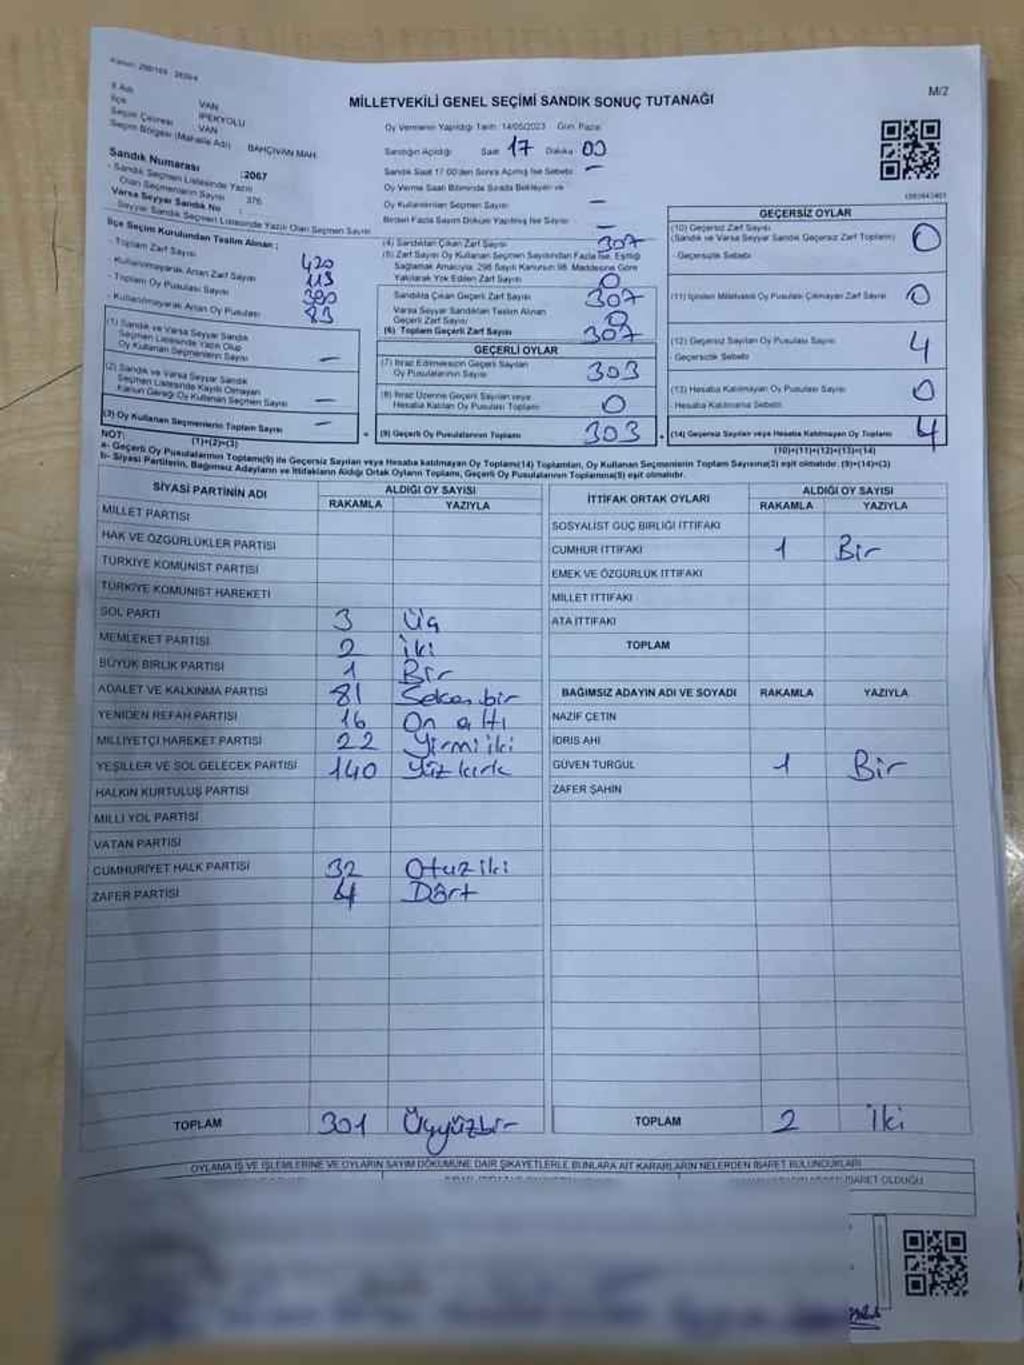 MİLLETVEKİLİ GENEL SEÇİMİ SANDIK SONUÇ TUTANAĞI
M/2
İl Adı VAN
İlçe İPEKYOLU
Seçim Çevresi VAN
Seçim Bölgesi (Mahalle Adı) BAHÇIVAN MAH.
Sandık Numarası :2067
- Sandık Seçmen Listesinde Yazılı
Olan Seçmenlerin Sayısı 376
Varsa Seyyar Sandık No :
Seyyar Sandık Seçmen Listesinde Yazılı Olan Seçmen Sayısı
Oy Vermenin Yapıldığı Tarih: 14/05/2023 Gün: Pazar
Sandığın Açıldığı Saat 17 Dakika 00
Sandık Saat 17:00'den Sonra Açılmış İse Sebebi: —
Oy Verme Saati Bitiminde Sırada Bekleyen ve
Oy Kullandırılan Seçmen Sayısı —
Birden Fazla Sayım Döküm Yapılmış İse Sayısı —
İlçe Seçim Kurulundan Teslim Alınan ;
- Toplam Zarf Sayısı 420
- Kullanılmayarak Artan Zarf Sayısı 113
- Toplam Oy Pusulası Sayısı 390
- Kullanılmayarak Artan Oy Pusulası 83
(1) Sandık ve Varsa Seyyar Sandık
Seçmen Listesinde Yazılı Olup
Oy Kullanan Seçmenlerin Sayısı —
(2) Sandık ve Varsa Seyyar Sandık
Seçmen Listesinde Kayıtlı Olmayan
Kanun Gereği Oy Kullanan Seçmen Sayısı —
(3) Oy Kullanan Seçmenlerin Toplam Sayısı —
(1)+(2)=(3)
(4) Sandıktan Çıkan Zarf Sayısı 307
(5) Zarf Sayısı Oy Kullanan Seçmen Sayısından Fazla İse, Eşitliği
Sağlamak Amacıyla, 298 Sayılı Kanunun 98. Maddesine Göre
Yakılarak Yok Edilen Zarf Sayısı 0
Sandıkta Çıkan Geçerli Zarf Sayısı 307
Varsa Seyyar Sandıktan Teslim Alınan
Geçerli Zarf Sayısı 0
(6) Toplam Geçerli Zarf Sayısı 307
GEÇERLİ OYLAR
(7) İtiraz Edilmeksizin Geçerli Sayılan
Oy Pusulalarının Sayısı 303
(8) İtiraz Üzerine Geçerli Sayılan veya
Hesaba Katılan Oy Pusulası Toplamı 0
(9) Geçerli Oy Pusulalarının Toplamı 303
GEÇERSİZ OYLAR
(10) Geçersiz Zarf Sayısı
(Sandık ve Varsa Seyyar Sandık Geçersiz Zarf Toplamı) 0
- Geçersizlik Sebebi
(11) İçinden Milletvekili Oy Pusulası Çıkmayan Zarf Sayısı 0
(12) Geçersiz Sayılan Oy Pusulası Sayısı 4
Geçersizlik Sebebi
(13) Hesaba Katılmayan Oy Pusulası Sayısı 0
- Hesaba Katılmama Sebebi
(14) Geçersiz Sayılan veya Hesaba Katılmayan Oy Toplamı 4
(10)+(11)+(12)+(13)=(14)
NOT:
a- Geçerli Oy Pusulalarının Toplamı(9) ile Geçersiz Sayılan veya Hesaba katılmayan Oy Toplamı(14) Toplamları, Oy Kullanan Seçmenlerin Toplam Sayısına(3) eşit olmalıdır. (9)+(14)=(3)
b- Siyasi Partilerin, Bağımsız Adayların ve İttifakların Aldığı Ortak Oyların Toplamı, Geçerli Oy Pusulalarının Toplamına(9) eşit olmalıdır.
SİYASİ PARTİNİN ADI ALDIĞI OY SAYISI
RAKAMLA YAZIYLA
MİLLET PARTİSİ
HAK VE ÖZGÜRLÜKLER PARTİSİ
TÜRKİYE KOMÜNİST PARTİSİ
TÜRKİYE KOMÜNİST HAREKETİ
SOL PARTİ 3 Üç
MEMLEKET PARTİSİ 2 İki
BÜYÜK BİRLİK PARTİSİ 1 Bir
ADALET VE KALKINMA PARTİSİ 81 Seksenbir
YENİDEN REFAH PARTİSİ 16 On altı
MİLLİYETÇİ HAREKET PARTİSİ 22 Yirmi iki
YEŞİLLER VE SOL GELECEK PARTİSİ 140 Yüz kırk
HALKIN KURTULUŞ PARTİSİ
MİLLİ YOL PARTİSİ
VATAN PARTİSİ
CUMHURİYET HALK PARTİSİ 32 Otuz iki
ZAFER PARTİSİ 4 Dört
TOPLAM 301 Üçyüzbir
İTTİFAK ORTAK OYLARI ALDIĞI OY SAYISI
RAKAMLA YAZIYLA
SOSYALİST GÜÇ BİRLİĞİ İTTİFAKI
CUMHUR İTTİFAKI 1 Bir
EMEK VE ÖZGÜRLÜK İTTİFAKI
MİLLET İTTİFAKI
ATA İTTİFAKI
TOPLAM
BAĞIMSIZ ADAYIN ADI VE SOYADI RAKAMLA YAZIYLA
NAZİF ÇETİN
İDRİS AHİ
GÜVEN TURGUL 1 Bir
ZAFER ŞAHİN
TOPLAM 2 İki
OYLAMA İŞ VE İŞLEMLERİNE VE OYLARIN SAYIM DÖKÜMÜNE DAİR ŞİKAYETLERLE BUNLARA AİT KARARLARIN NELERDEN İBARET BULUNDUKLARI
İBARET OLDUĞU